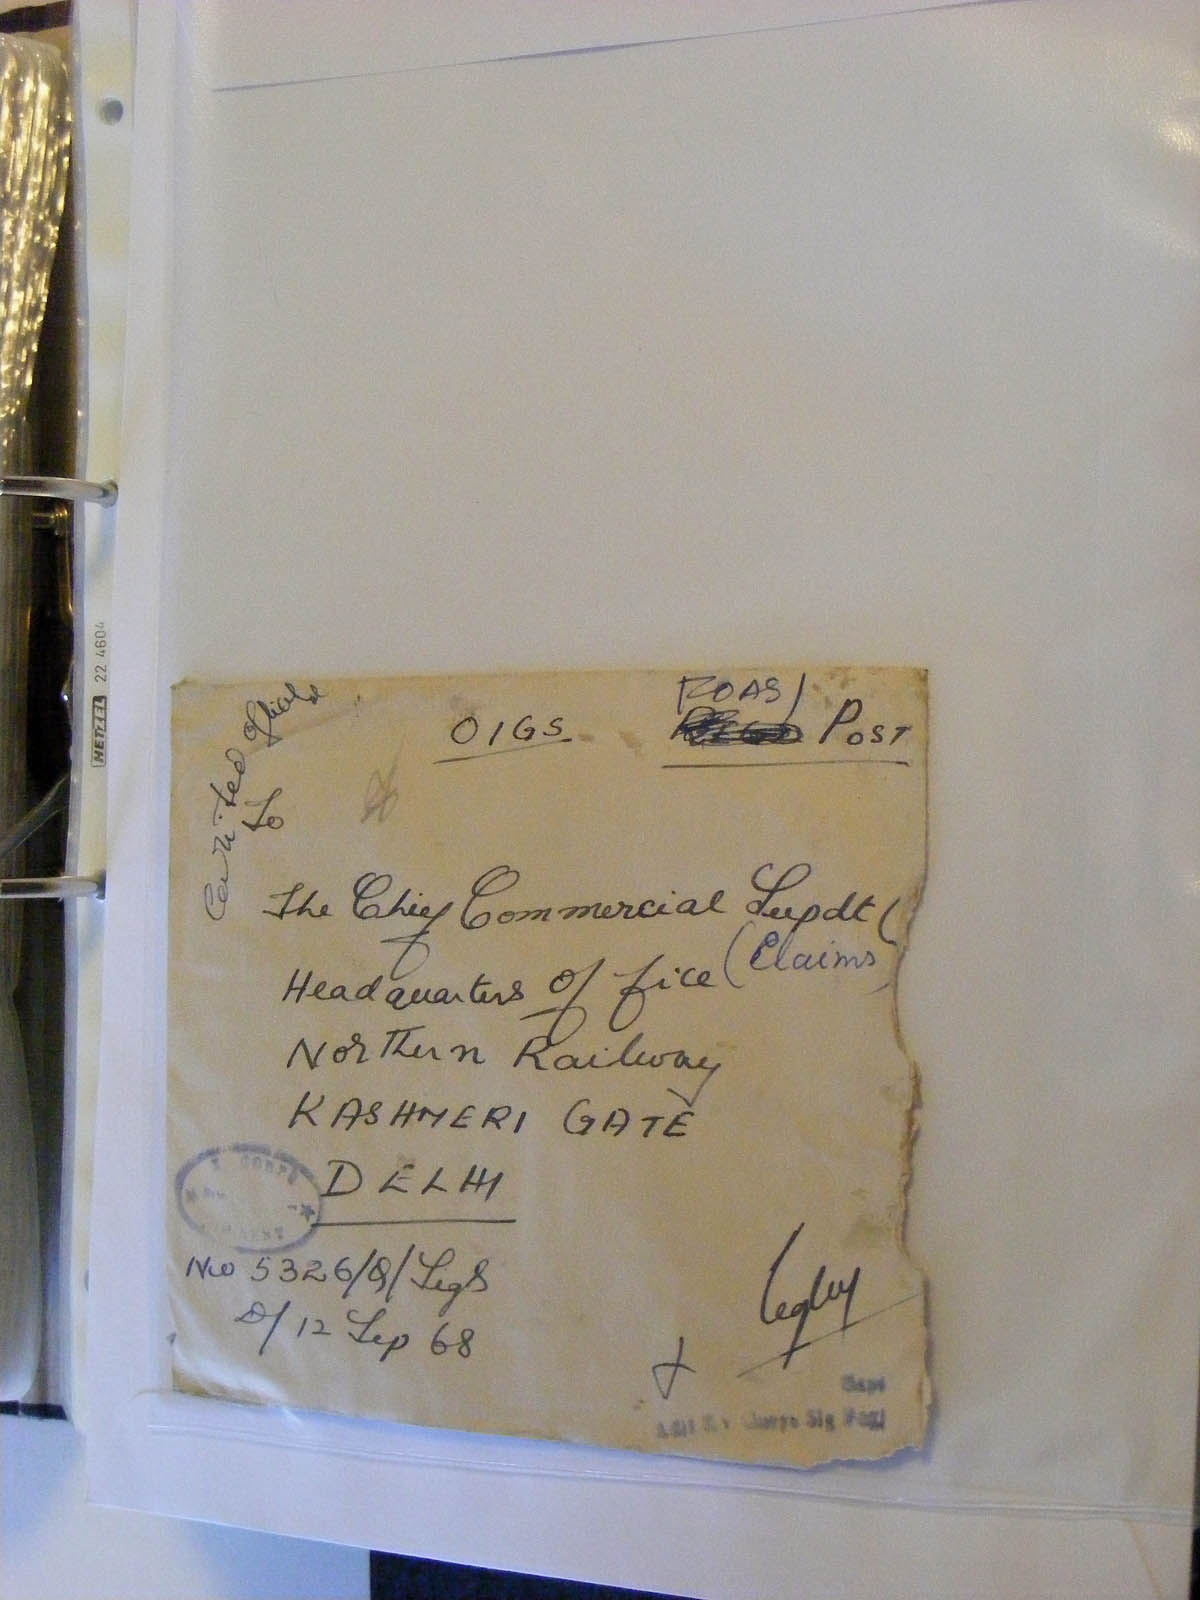 OIGS
ROAS/ POST
Certified official
To
The Chief Commercial Supdt (
(Claims
Headquarters Office
Northern Railway
KASHMERI GATE
DELHI
CORPS
No 5326/Q/Sigs
D/ 12 Sep 68
Capt
Adjt Corps Sig Regt
HETZEL 22 4604